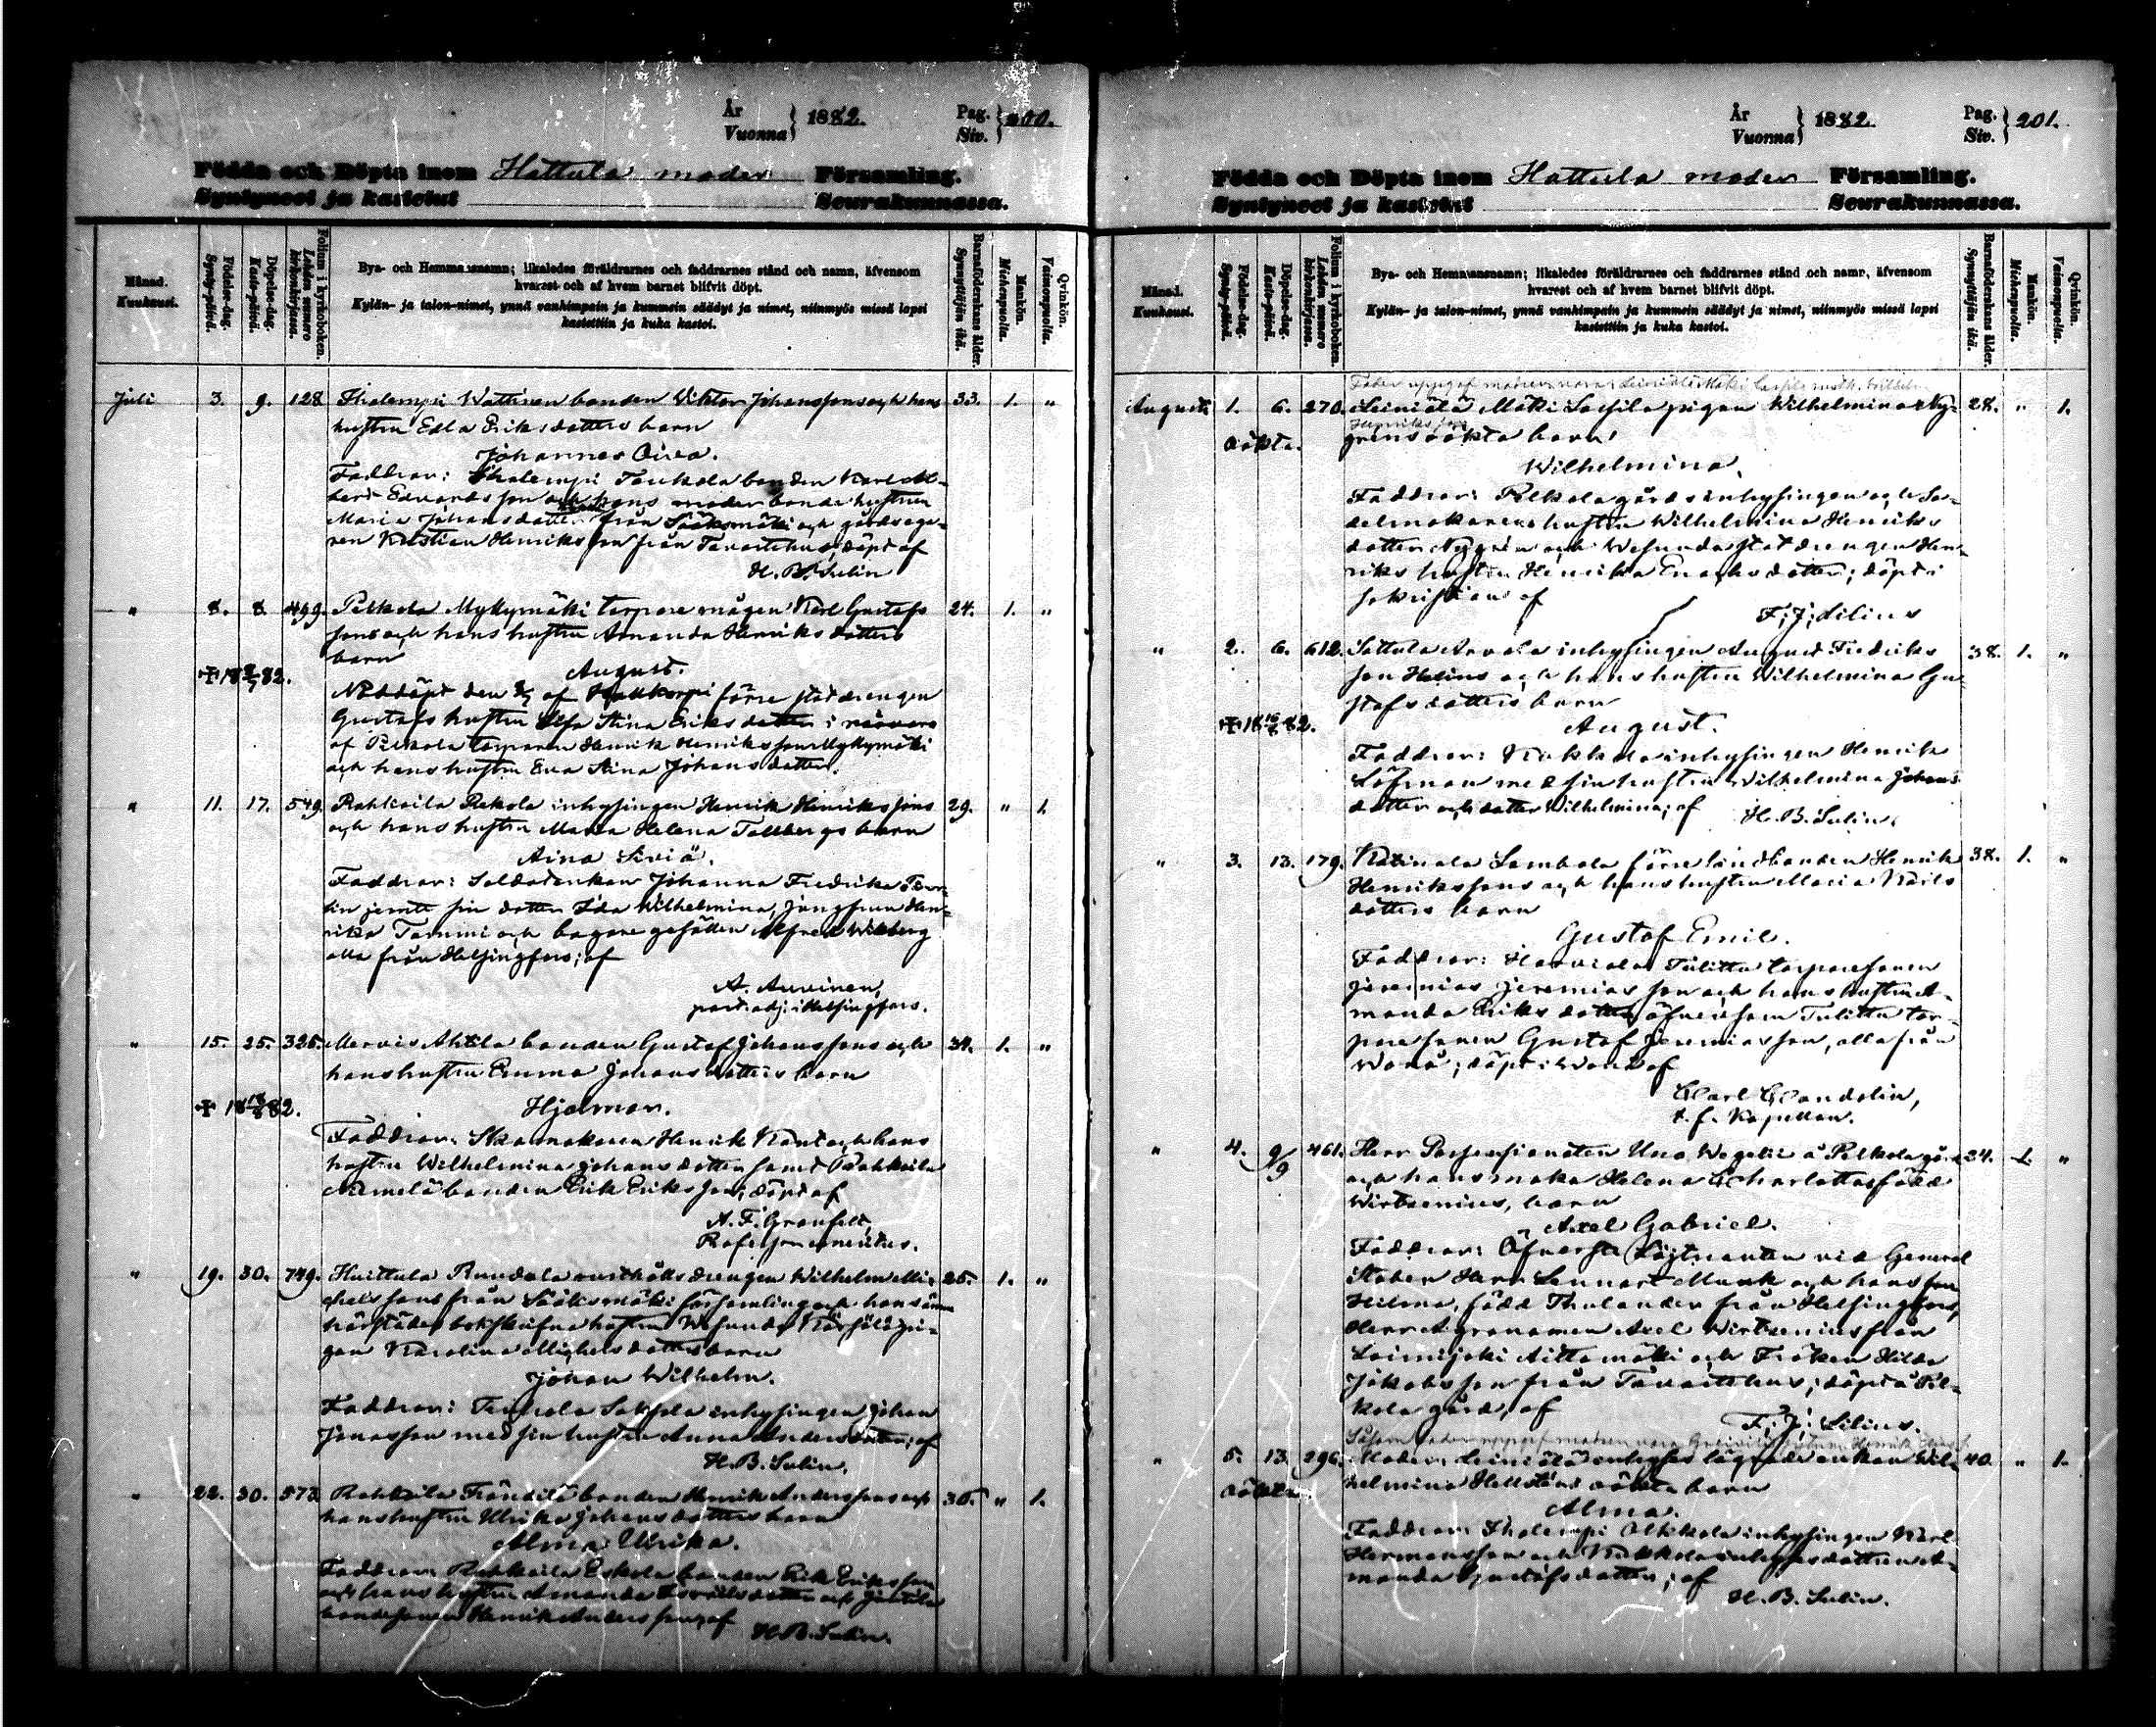 År
Vuonna } 1882.
Pag.
Siv. } 200.
Födda och Döpta inom Hattula moder Församling.
Syntyneet ja kastetut Seurakunnassa.
Månad.
Kuukausi.
Födelse-dag.
Synty-päivä.
Döpelse-dag.
Kaste-päivä.
Folium i kyrkoboken.
Lehden numero kirkonkirjassa.
Bya- och Hemmansnamn; likaledes föräldrarnes och faddrarnes stånd och namn, äfvensom
hvarest och af hvem barnet blifvit döpt.
Kylän- ja talon-nimet, ynnä vanhimpain ja kummein säädyt ja nimet, niinmyös missä lapsi
kastettiin ja kuka kastoi.
Barnaföderskans ålder.
Synnyttäjän ikä.
Mankön.
Miehenpuolta.
Qvinkön.
Vaimonpuolta.
Juli 3. 9. 128 Ihalempi Wattinen bonden Viktor Johanssons och hans 33. 1. "
hustru Edla Eriksdotters barn
Johannes Oiva.
Faddrar: Ihalempi Taukola bonden Karl
Edvardsson och hans moder bonde hustrun
Maria Johansdotter från Sääksmäki och gårdsega-
ren Kristian Henriksson från Tavastehus, döpt af
H. B. Sulin
" 8. 8. 499. Pelkola Mykymäki torpare mågen Karl Gustafs 24. 1. "
sons och hans hustru Amanda Henriksdotters
barn
August.
✠ 18 8/7 82.
Nöddöpt den 8/7 af förre statdrengen
Gustafs hustru Ulfa Stina Eriksdotter i närvaro
af Pelkola torparen Henrik Henriksson Mykymäki
och hans hustru Eva Stina Johansdotter.
" 11. 17. 549. Rahkoila Pekola inhysingen Henrik Henrikssons 29. " 1.
och hans hustru Maria Helena Tallbergs barn
Aina Siviä.
Faddrar: Soldatenkan Johanna Fredrika
jemte sin dotter Ida Wilhelmina, Jungfrun Hen-
rika Tammi och bagare gesällen Alfred Wikberg
alla från Helsingfors; af
A. Auvinen,
past. adj. i Helsingfors.
" 15. 25. 325. Mervis Ahtila bonden Gustaf Johanssons och 34. 1. "
hans hustru Emma Johansdotters barn
✠ 18 18/8 82.
Hjalmar.
Faddrar: Skomakaren Henrik och hans
hustru Wilhelmina Johansdotter samt Rahkoila
bonden Erik Eriksson; döpt af
A. F. Granfelt,
Professor emeritus.
" 19. 30. 749. Huittula Rundola rusthålls drengen Wilhelm Mi- 25. 1. "
chelssons från Sääksmäki församling och hans ännu
härstädes bokskrifna hustru Wesunda pi-
gan Karolina Michelsdotters barn
Johan Wilhelm.
Faddrar: inhysingen Johan
Jonasson med sin hustru Anna Andersdotter; af
H. B. Sulin.
" 22. 30. 573 Rahkoila bonden Henrik Anderssons och 35. " 1.
hans hustru Ulrika Johansdotters barn
Alma Ulrika.
Faddrar: Rahkoila Eskola bonden Erik Eriksson
och hans hustru Amanda och
bondesonen Henrik Andersson, af
H. B. Sulin.
År
Vuonna } 1882.
Pag.
Siv. } 201.
Födda och Döpta inom Hattula moder Församling.
Syntyneet ja kastetut Seurakunnassa.
Månad.
Kuukausi.
Födelse-dag.
Synty-päivä.
Döpelse-dag.
Kaste-päivä.
Folium i kyrkoboken.
Lehden numero kirkonkirjassa.
Bya- och Hemmansnamn; likaledes föräldrarnes och faddrarnes stånd och namn, äfvensom
hvarest och af hvem barnet blifvit döpt.
Kylän- ja talon-nimet, ynnä vanhimpain ja kummein säädyt ja nimet, niinmyös missä lapsi
kastettiin ja kuka kastoi.
Barnaföderskans ålder.
Synnyttäjän ikä.
Mankön.
Miehenpuolta.
Qvinkön.
Vaimonpuolta.
Fader uppgaf modren vara
Augusti 1. 6. 270. Leiniälä Mäki pigan Wilhelmina Ny- 28. " 1.
oäkta. grens oäkta barn
Wilhelmina.
Faddrar: Pelkola gårds inhysingen och Sa-
delmakarens hustru Wilhelmina Henriks
dotter Nygren och Wesunda statdrengen Hen-
riks hustru Henrika Enochsdotter; döpt i
sakristian af
F. J. Lilius
" 2. 6. 612. Sattula Arvola inhysingen August Fredriks 38. 1. "
son Helins och hans hustru Wilhelmina Gu-
stafsdotters barn
✠ 18 16/8 82.
August.
Faddrar: inhysingen Henrik
Löfman med sin hustru Wilhelmina Johans
dotter och dotter Wilhelmina; af H. B. Sulin.
" 3. 13. 179. Katinala Lambola förre landbonden Henrik 38. 1. "
Henrikssons och hans hustru Maria Karls
dotters barn
Gustaf Emil.
Faddrar: Harviala Tulittu torparesonen
Jeremias Jeremiasson och hans hustru A-
manda Eriksdotter, äfvensom Tulittu tor-
paresonen Gustaf Jeremiasson, alla från
Wånå; döpt i Wånå af
Carl Clandolin,
t. f. Kapellan.
" 4. 9/9 461. Herr Possessionaten Uno Wegelii å Pelkola gård 34. 1. "
och hans maka Helena Charlottas född
Wirtzenius, barn
Axel Gabriel.
Faddrar: Öfverste Löjtnanten vid General
Staben Herr Lennart Munk och hans fru
Hilma, född Thulander från Helsingfors,
Herr Agronomen Axel Wirtzenius från
Loimijoki Aittamäki och Fröken Hilda
Jakobsson från Tavastehus; döpt å Pel-
kola gård, af
F. J. Lilius.
" 5. 13. 296. Leiniälä inhyses enkan Wil- 40. " 1.
oäkta helmina oäkta barn
Alma.
Faddrar: Ihalempi Olkkola inhysingen Karl
Hermansson och inhysesdottren A-
manda Gustafsdotter; af
H. B. Sulin.